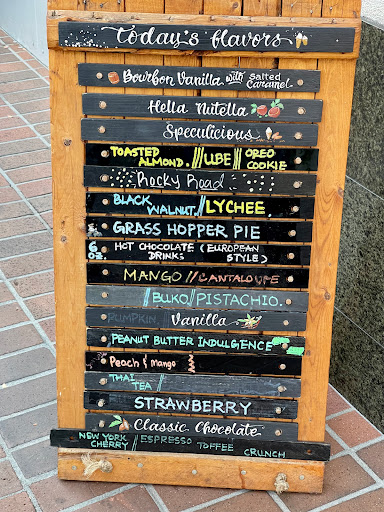 today's flavors
Bourbon Vanilla with Salted Caramel
Hella Nutella
Speculicious
TOASTED ALMOND. // UBE // OREO COOKIE
Rocky Road
BLACK WALNUT. // LYCHEE
GRASS HOPPER PIE
6 OZ. HOT CHOCOLATE (EUROPEAN DRINKS STYLE)
MANGO // CANTALOUPE
// BUKO // PISTACHIO.
PUMPKIN Vanilla
PEANUT BUTTER INDULGENCE
Peach & mango
THAI TEA //
STRAWBERRY
Classic Chocolate
NEW YORK CHERRY // ESPRESSO TOFFEE CRUNCH